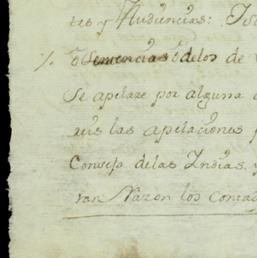 tes y Audiencias:
ò Semencias ò delos de
Se apelare por alguna
reis las apelaciones
Consejo delas Indias, y
ran Razon los Conta